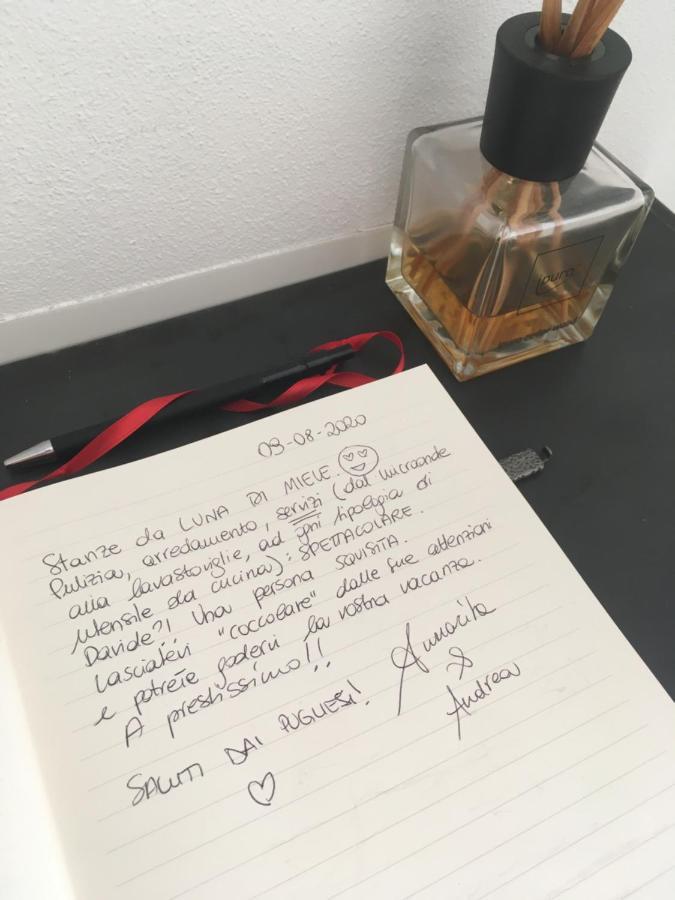 09-08-2020
Stanze da LUNA DI MIELE.
Pulizia, arredamento, servizi (dal microonde
alla lavastoviglie, ad ogni tipologia di
utensile da cucina): SPETTACOLARE.
Davide?! Una persona SQUISITA.
Lasciatevi "coccolare" dalle sue attenzioni
e potrete godervi la vostra vacanza.
A prestissimo!!
SALUTI DAI PUGLIESI!
Annarita
&
Andrea
ipuro